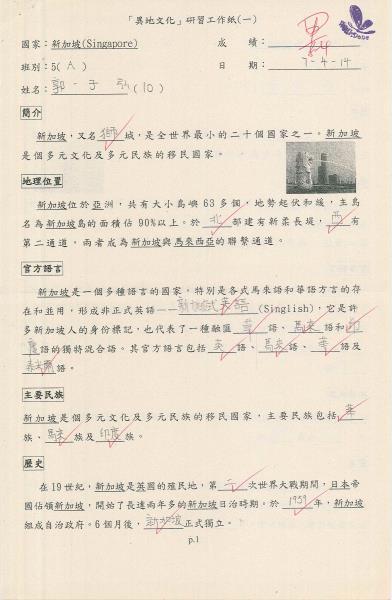 「異地文化」研習工作紙(一)
國家：新加坡(Singapore) 成績：
班別：5( A ) 日期：7-4-14
姓名：郭子弘(10)
簡介
新加坡，又名獅城，是全世界最小的二十個國家之一。新加坡
是個多元文化及多元民族的移民國家。
地理位置
新加坡位於亞洲，共有大小島嶼63多個，地勢起伏和緩，主島
名為新加坡島的面積佔90%以上。於北部建有新柔長堤，西有
第二通道，兩者成為新加坡與馬來西亞的聯繫通道。
官方語言
新加坡是一個多種語言的國家，特別是各式馬來語和華語方言的存
在和並用，形成非正式英語──新加坡式英語(Singlish)，它是許
多新加坡人的身份標記，也代表了一種融匯華語、馬來語和印
度語的獨特混合語。其官方語言包括英語、馬來語、華語及
泰米爾語。
主要民族
新加坡是個多元文化及多元民族的移民國家，主要民族包括華
族、馬來族及印度族。
歷史
在19世紀，新加坡是英國的殖民地，第二次世界大戰期間，日本帝
國佔領新加坡，開始了長達兩年多的新加坡日治時期。於1959年，新加坡
組成自治政府。6個月後，新加坡正式獨立。
p.1